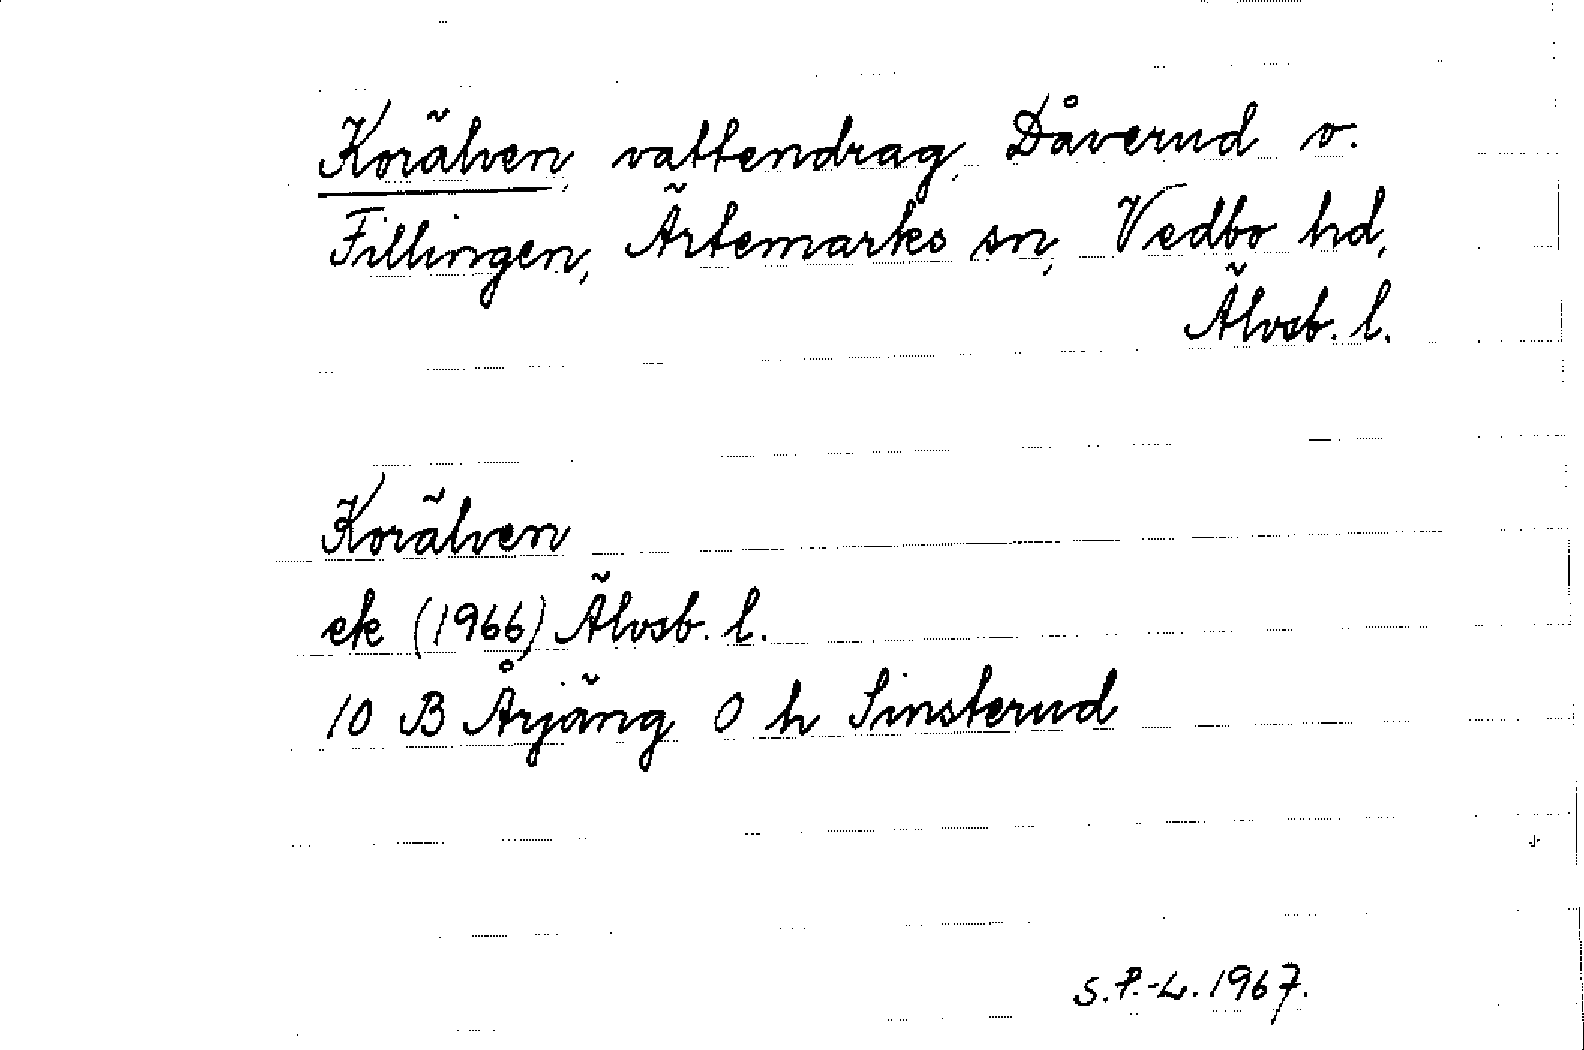 Korälven, vattendrag, Dåverud o.
Fillingen, Ärtemarks sn, Vedbo hd,
Älvsb. l.
Korälven
ek (1966) Älvsb. l.
10 B Årjäng 0 h Sinsterud
S.P.-L. 1967.